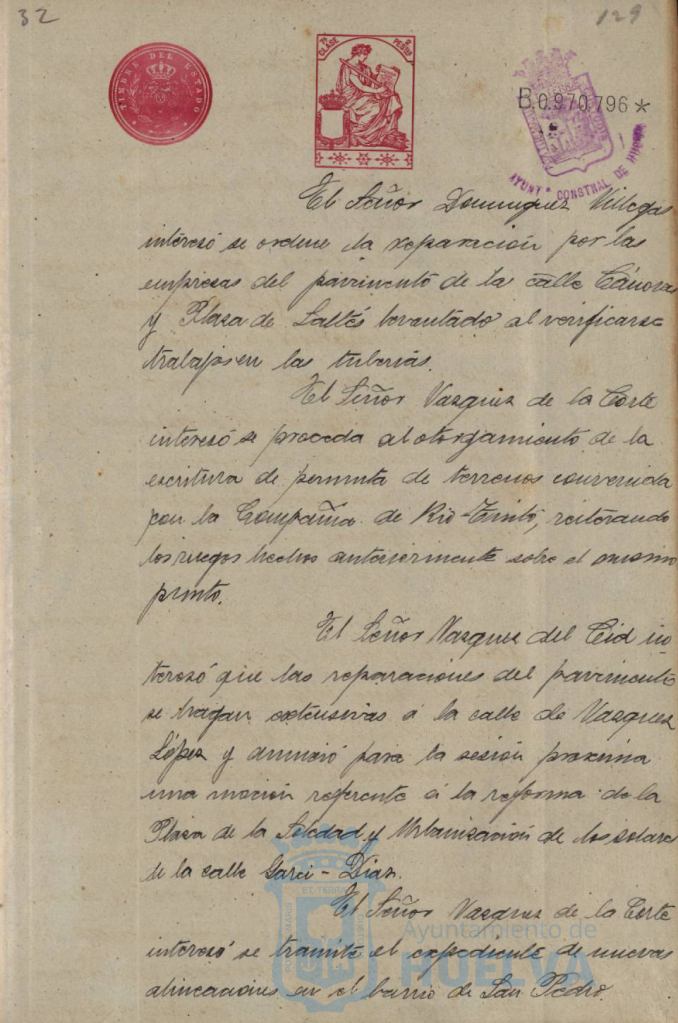 32
129
TIMBRE DEL ESTADO
7ª CLASE
2 PESETAS
B.0.970.796 *
AYUNTº CONSTNAL DE HUELVA
El Señor Dominguez Villegas
interesó se ordene la reparación por las
empresas del pavimento de la calle Cánovas
y Plaza de Saltés levantado al verificarse
trabajos en las tuberias.
El Señor Vazquez de la Corte
interesó se proceda al otorgamiento de la
escritura de permuta de terrenos convenida
con la Compañia de Rio-Tinto, reiterando
los ruegos hechos anteriormente sobre el mismo
punto.
El Señor Vazquez del Cid in
teresó que las reparaciones del pavimento
se hagan extensivas á la calle de Vazquez
López y anunció para la sesión proxima
una moción referente á la reforma de la
Plaza de la Soledad y Urbanización de los solares
de la calle Garci-Diaz.
El Señor Vazquez de la Corte
interesó se tramite el expediente de nuevas
alineaciones en el barrio de San Pedro.
Ayuntamiento de
HUELVA